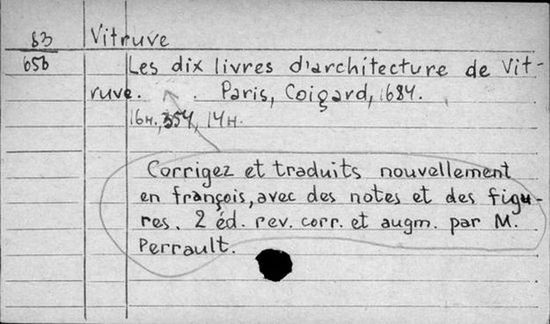 83 Vitruve
656 Les dix livres d'architecture de Vit-
ruve. . Paris, Coigard, 1684.
16н., 354, 14н.
Corrigez et traduits nouvellement
en françois, avec des notes et des figu-
res. 2 éd. rev. corr. et augm. par M.
Perrault.